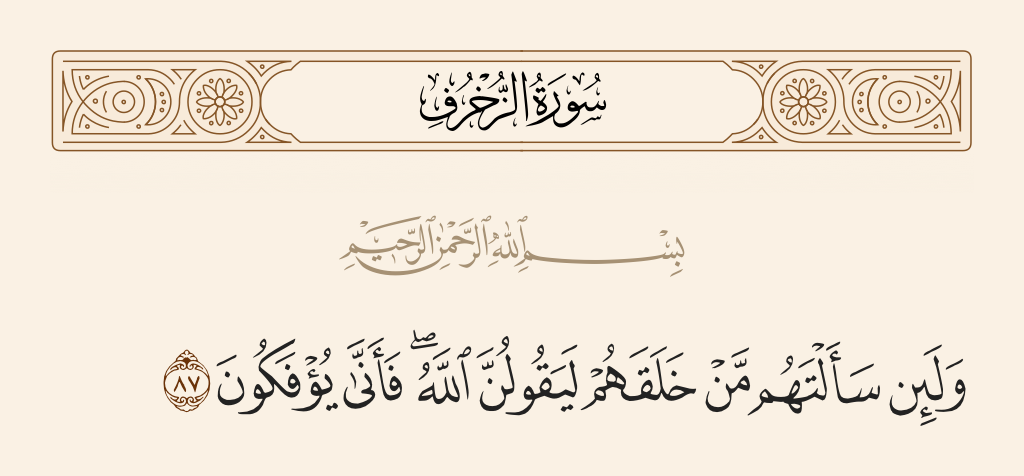 سُورَةُ الزُّخْرُفِ
بِسْمِ ٱللَّهِ ٱلرَّحْمَٰنِ ٱلرَّحِيمِ
وَلَئِن سَأَلْتَهُم مَّنْ خَلَقَهُمْ لَيَقُولُنَّ ٱللَّهُ ۖ فَأَنَّىٰ يُؤْفَكُونَ ٨٧